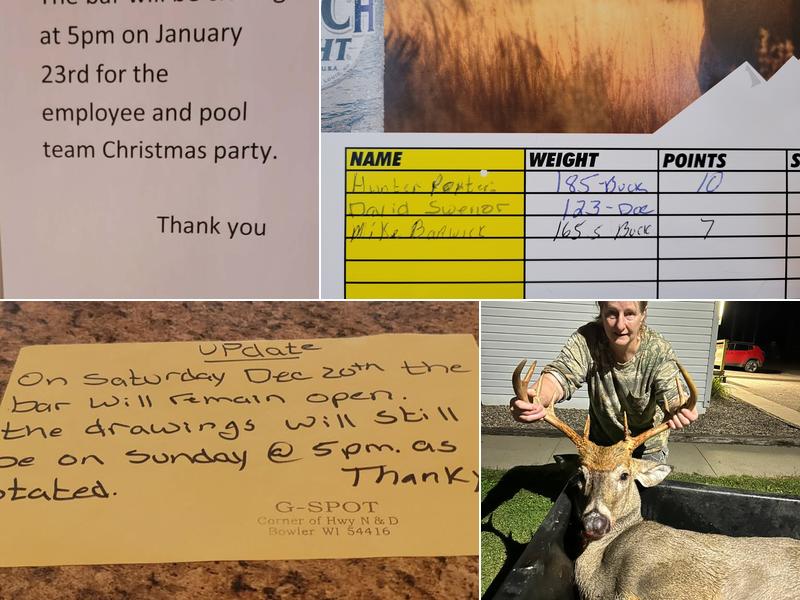 at 5pm on January
23rd for the
employee and pool
team Christmas party.
Thank you
CH
HT
NAME WEIGHT POINTS S
Hunter Porter 185-Buck 10
David Swenor 123-Doe
Mike Barwick 165.5 Buck 7
UPdate
On Saturday Dec 20th the
bar will remain open.
the drawings will still
be on Sunday @ 5pm. as
stated. Thank
G-SPOT
Corner of Hwy N & D
Bowler WI 54416